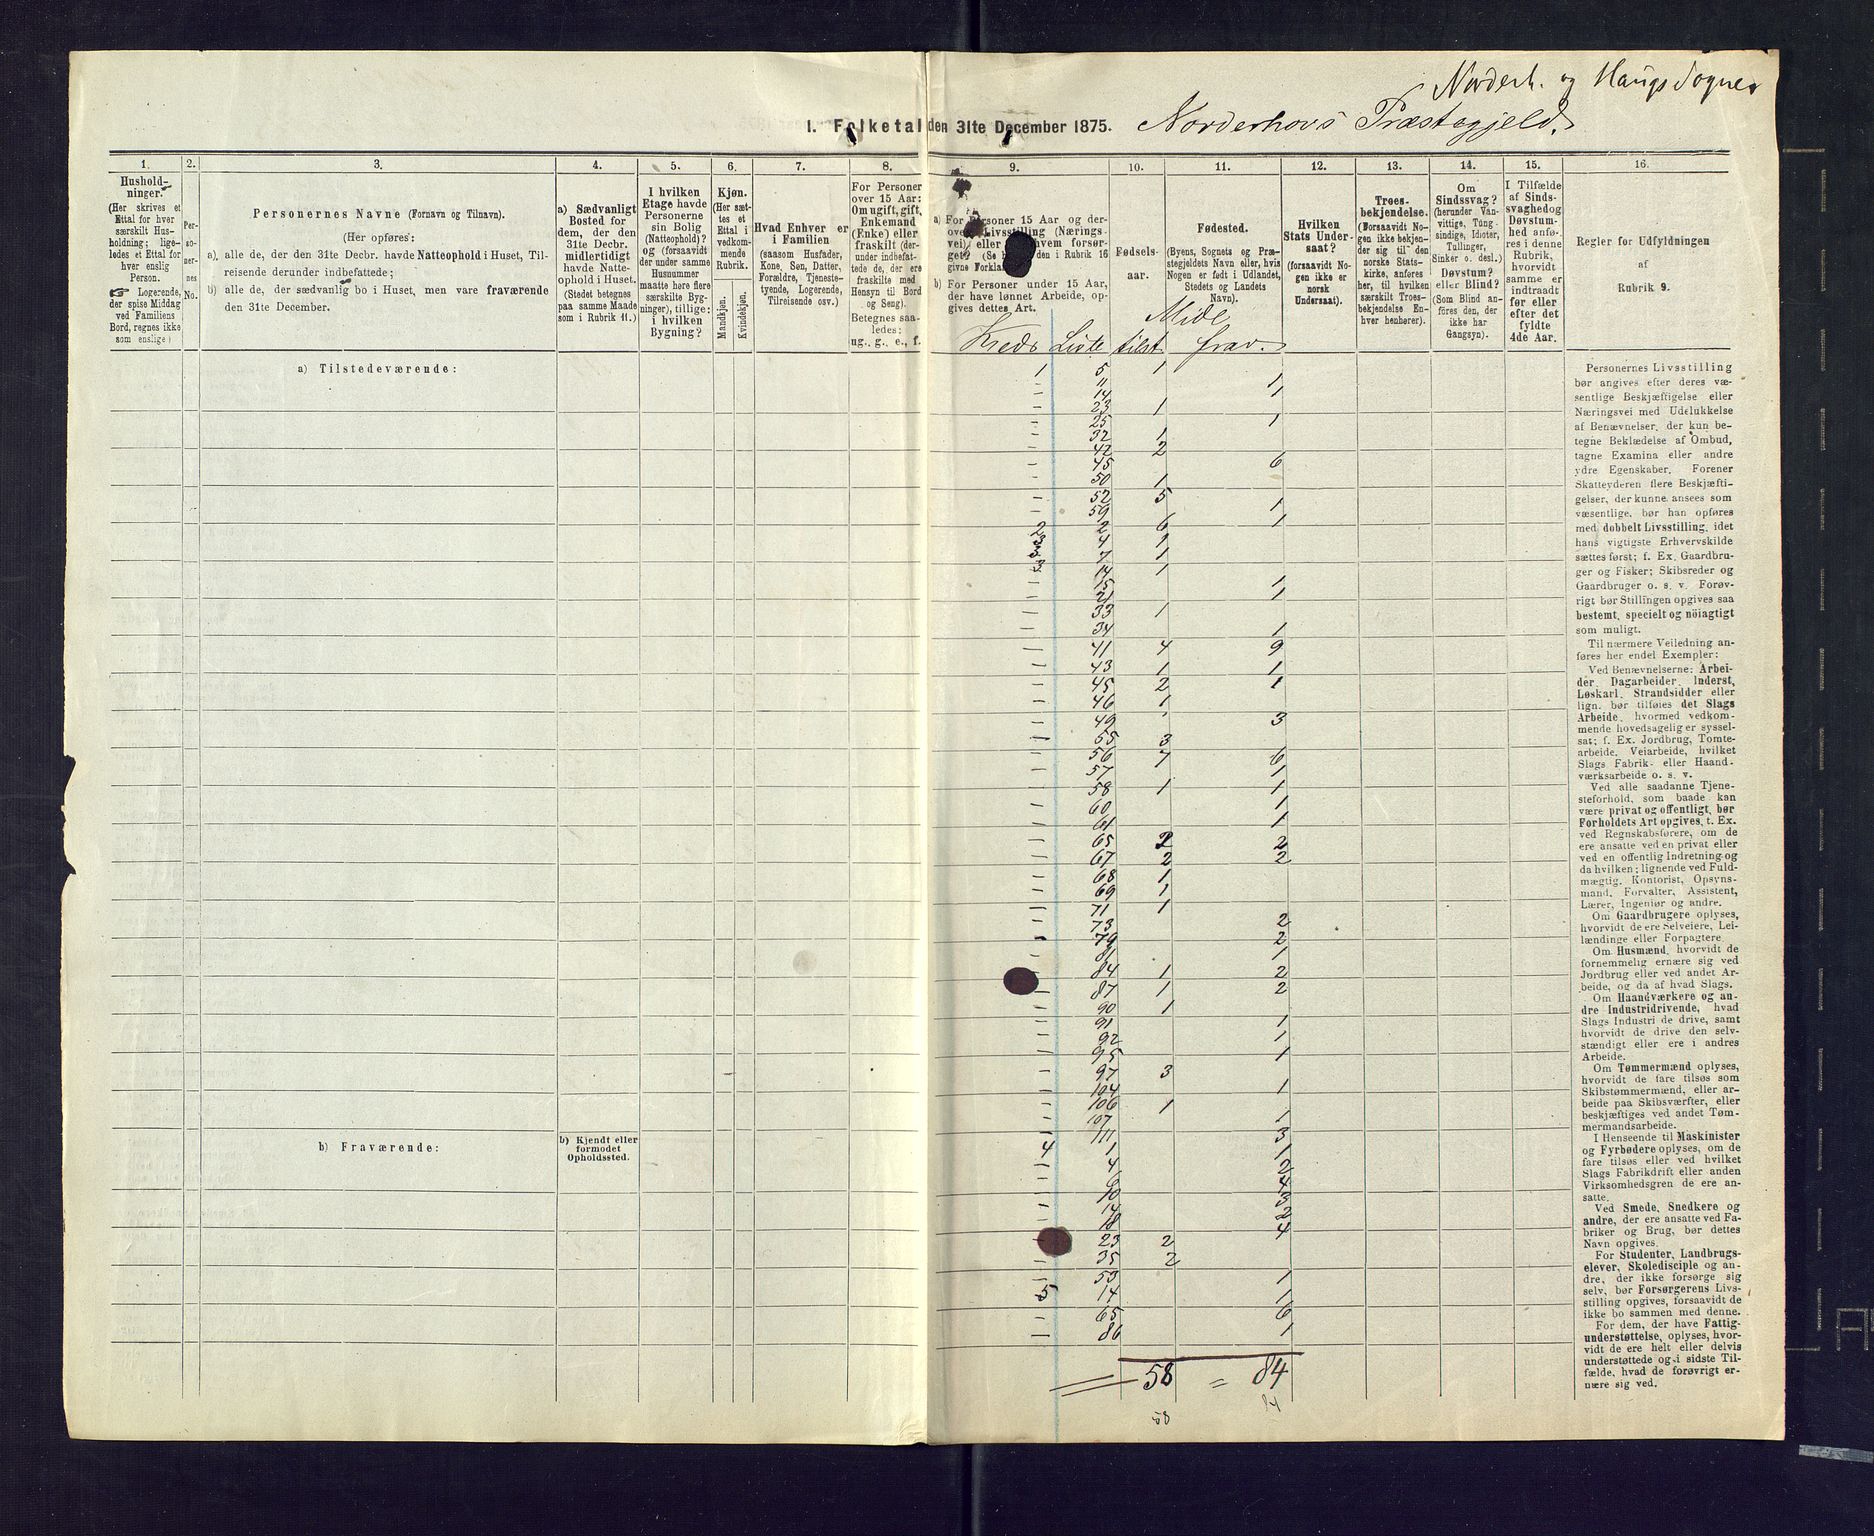 Norderh. og Haugs Sogne
I. Folketal den 31te December 1875. Norderhovs Præstegjeld.
1.
Hushold-
ninger.
(Her skrives et
Ettal for hver
særskilt Hus-
holdning; lige-
ledes et Ettal for
hver enslig
Person.
Logerende,
der spise Middag
ved Familiens
Bord, regnes ikke
som enslige)
2.
Per-
so-
ner-
nes
No.
3.
Personernes Navne (Fornavn og Tilnavn).
(Her opføres:
a) alle de, der den 31te Decbr. havde Natteophold i Huset, Til-
reisende derunder indbefattede;
b) alle de, der sædvanlig bo i Huset, men vare fraværende
den 31te December.
4.
a) Sædvanligt
Bosted for
dem, der den
31te Decbr.
midlertidigt
havde Natte-
ophold i Huset.
(Stedet betegnes
paa samme Maade
som i Rubrik 11.)
5.
I hvilken
Etage havde
Personerne
sin Bolig
(Natteophold)?
og (forsaavidt
der under samme
Husnummer
maatte høre flere
særskilte Byg-
ninger), tillige:
i hvilken
Bygning?
6.
Kjøn.
(Her sæt-
tes et
Ettal i
vedkom-
mende
Rubrik.
Mandkjøn.
Kvindekjøn.
7.
Hvad Enhver er
i Familien
(saasom Husfader,
Kone, Søn, Datter,
Forældre, Tjeneste-
tyende, Logerende,
Tilreisende osv.)
8.
For Personer
over 15 Aar:
Om ugift, gift,
Enkemand
(Enke) eller
fraskilt (der-
under indbefat-
tede de, der ere
fraskilte med
Hensyn til Bord
og Seng).
Betegnes saa-
ledes:
ug., g., e., f.
9.
a) For Personer 15 Aar og der-
over: Livsstilling (Nærings-
vei) eller hvem forsør-
get? (Se den i Rubrik 16
givne Forklaring
b) For Personer under 15 Aar,
der have lønnet Arbeide, op-
gives dettes Art.
10.
Fødsels-
aar.
11.
Fødested.
(Byens, Sognets og Præ-
stegjeldets Navn eller, hvis
Nogen er født i Udlandet,
Stedets og Landets
Navn).
12.
Hvilken
Stats Under-
saat?
(forsaavidt No-
gen ikke er
norsk
Undersaat).
13.
Troes-
bekjendelse.
(Forsaavidt No-
gen ikke bekjen-
der sig til den
norske Stats-
kirke, anføres
her, til hvilken
særskilt Troes-
bekjendelse En-
hver henhører).
14.
Om
Sindssvag?
(herunder Van-
vittige, Tung-
sindige, Idioter,
Tullinger,
Sinker o. desl.)
Døvstum?
eller Blind?
(Som Blind an-
føres den, der
ikke har
Gangsyn).
15.
I Tilfælde
af Sinds-
svaghed og
Døvstum-
hed anfø-
res i denne
Rubrik,
hvorvidt
samme er
indtraadt
før eller
efter det
fyldte
4de Aar.
16.
Regler for Udfyldningen
af
Rubrik 9.
Mide
Kreds Liste tilst. frav.
a) Tilstedeværende:
1 5 1
11 1
14 1
23 1
25 1
32 1
42 2
45 6
50 1
52 5
59 1
2 2 6 1
4 1
7 1
14 1
15 1
21 1
33 1
34 1
41 4 9
43 1 1
45 2 1
46 1
49 3
55 3
56 7 6
57 1
58 1 1
60 1
61 1
65 2 2
67 2 2
68 1
69 1
71 1
73 2
79 2
81 1
84 1 2
87 1 2
90 1
91 1
92 1
95 1
97 3
104 1
106 1
107 1
111 3
4 1 1
4
10
14
18 4
23 2
35 2
53 1
5 14 1
65 6
86 1
58 = 84
58 84
b) Fraværende:
b) Kjendt eller
formodet
Opholdssted.
Personernes Livsstilling
bør angives efter deres væ-
sentlige Beskjæftigelse eller
Næringsvei med Udelukkelse
af Benævnelser, der kun be-
tegne Beklædelse af Ombud,
tagne Examina eller andre
ydre Egenskaber. Forener
Skatteyderen flere Beskjæfti-
gelser, der kunne ansees som
væsentlige, bør han opføres
med dobbelt Livsstilling, idet
hans vigtigste Erhvervskilde
sættes først; f. Ex. Gaardbru-
ger og Fisker; Skibsreder og
Gaardbruger o. s. v. Forøv-
rigt bør Stillingen opgives saa
bestemt, specielt og nøiagtigt
som muligt.
Til nærmere Veiledning an-
føres her endel Exempler:
Ved Benævnelserne: Arbei-
der, Dagarbeider, Inderst,
Løskarl, Strandsidder eller
lign. bør tilføies det Slags
Arbeide, hvormed vedkom-
mende hovedsagelig er syssel-
sat; f. Ex. Jordbrug, Tomte-
arbeide, Veiarbeide, hvilket
Slags Fabrik- eller Haand-
værksarbeide o. s. v.
Ved alle saadanne Tjene-
steforhold, som baade kan
være privat og offentligt, bør
Forholdets Art opgives, t. Ex.
ved Regnskabsførere, om de
ere ansatte ved en privat eller
ved en offentlig Indretning og
da hvilken; lignende ved Fuld-
mægtig, Kontorist, Opsyns-
mand, Forvalter, Assistent,
Lærer, Ingeniør og andre.
Om Gaardbrugere oplyses,
hvorvidt de ere Selveiere, Lei-
lændinge eller Forpagtere.
Om Husmænd, hvorvidt de
fornemmelig ernære sig ved
Jordbrug eller ved andet Ar-
beide, og da af hvad Slags.
Om Haandværkere og an-
dre Industridrivende, hvad
Slags Industri de drive, samt
hvorvidt de drive den selv-
stændigt eller ere i andres
Arbeide.
Om Tømmermænd oplyses,
hvorvidt de fare tilsøs som
Skibstømmermænd, eller ar-
beide paa Skibsværfter, eller
beskjæftiges ved andet Tøm-
mermandsarbeide.
I Henseende til Maskinister
og Fyrbødere oplyses, om de
fare tilsøs eller ved hvilket
Slags Fabrikdrift eller anden
Virksomhedsgren de ere an-
satte.
Ved Smede, Snedkere og
andre, der ere ansatte ved Fa-
briker og Brug, bør dettes
Navn opgives.
For Studenter, Landbrugs-
elever, Skoledisciple og an-
dre, der ikke forsørge sig
selv, bør Forsørgerens Livs-
stilling opgives, forsaavidt de
ikke bo sammen med denne.
For dem, der have Fattig-
understøttelse, oplyses, hvor-
vidt de ere helt eller delvis
understøttede og i sidste Til-
fælde, hvad de forøvrigt er-
nære sig ved.